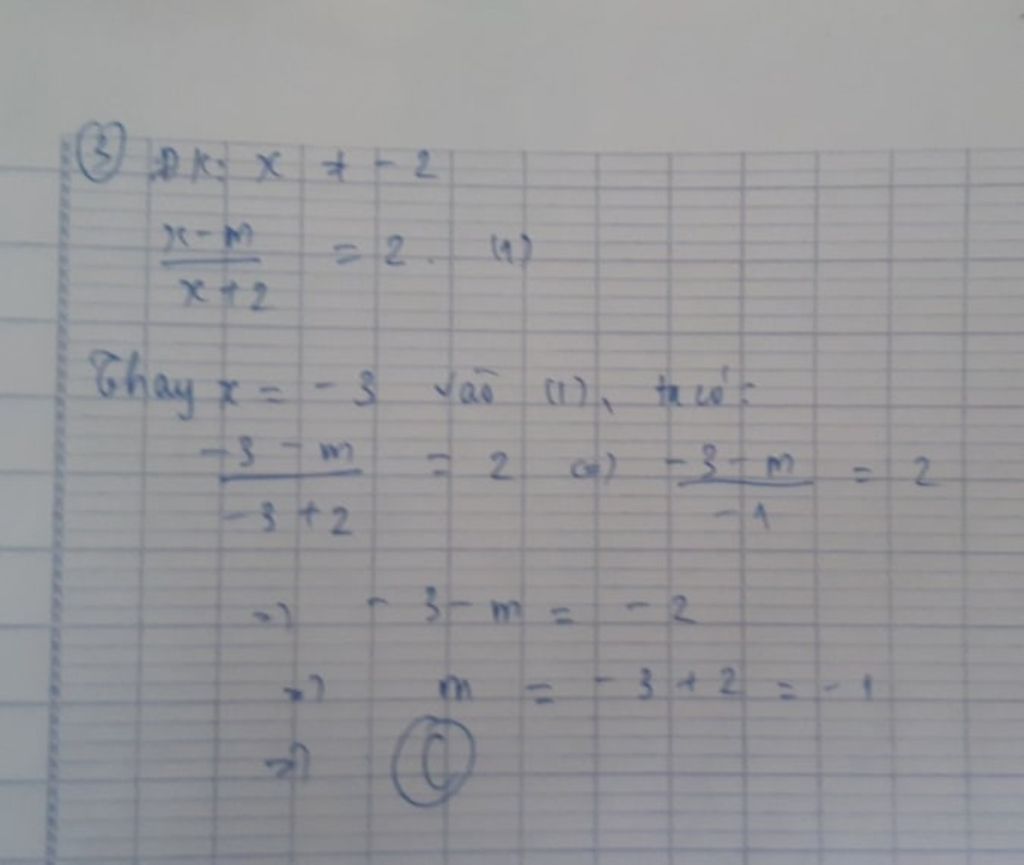 ③ ĐK: x ≠ -2
x-m / x+2 = 2. (1)
Thay x = -3 vào (1), ta có:
-3-m / -3+2 = 2 <=> -3-m / -1 = 2
=> -3-m = -2
=> m = -3+2 = -1
=> Ⓒ